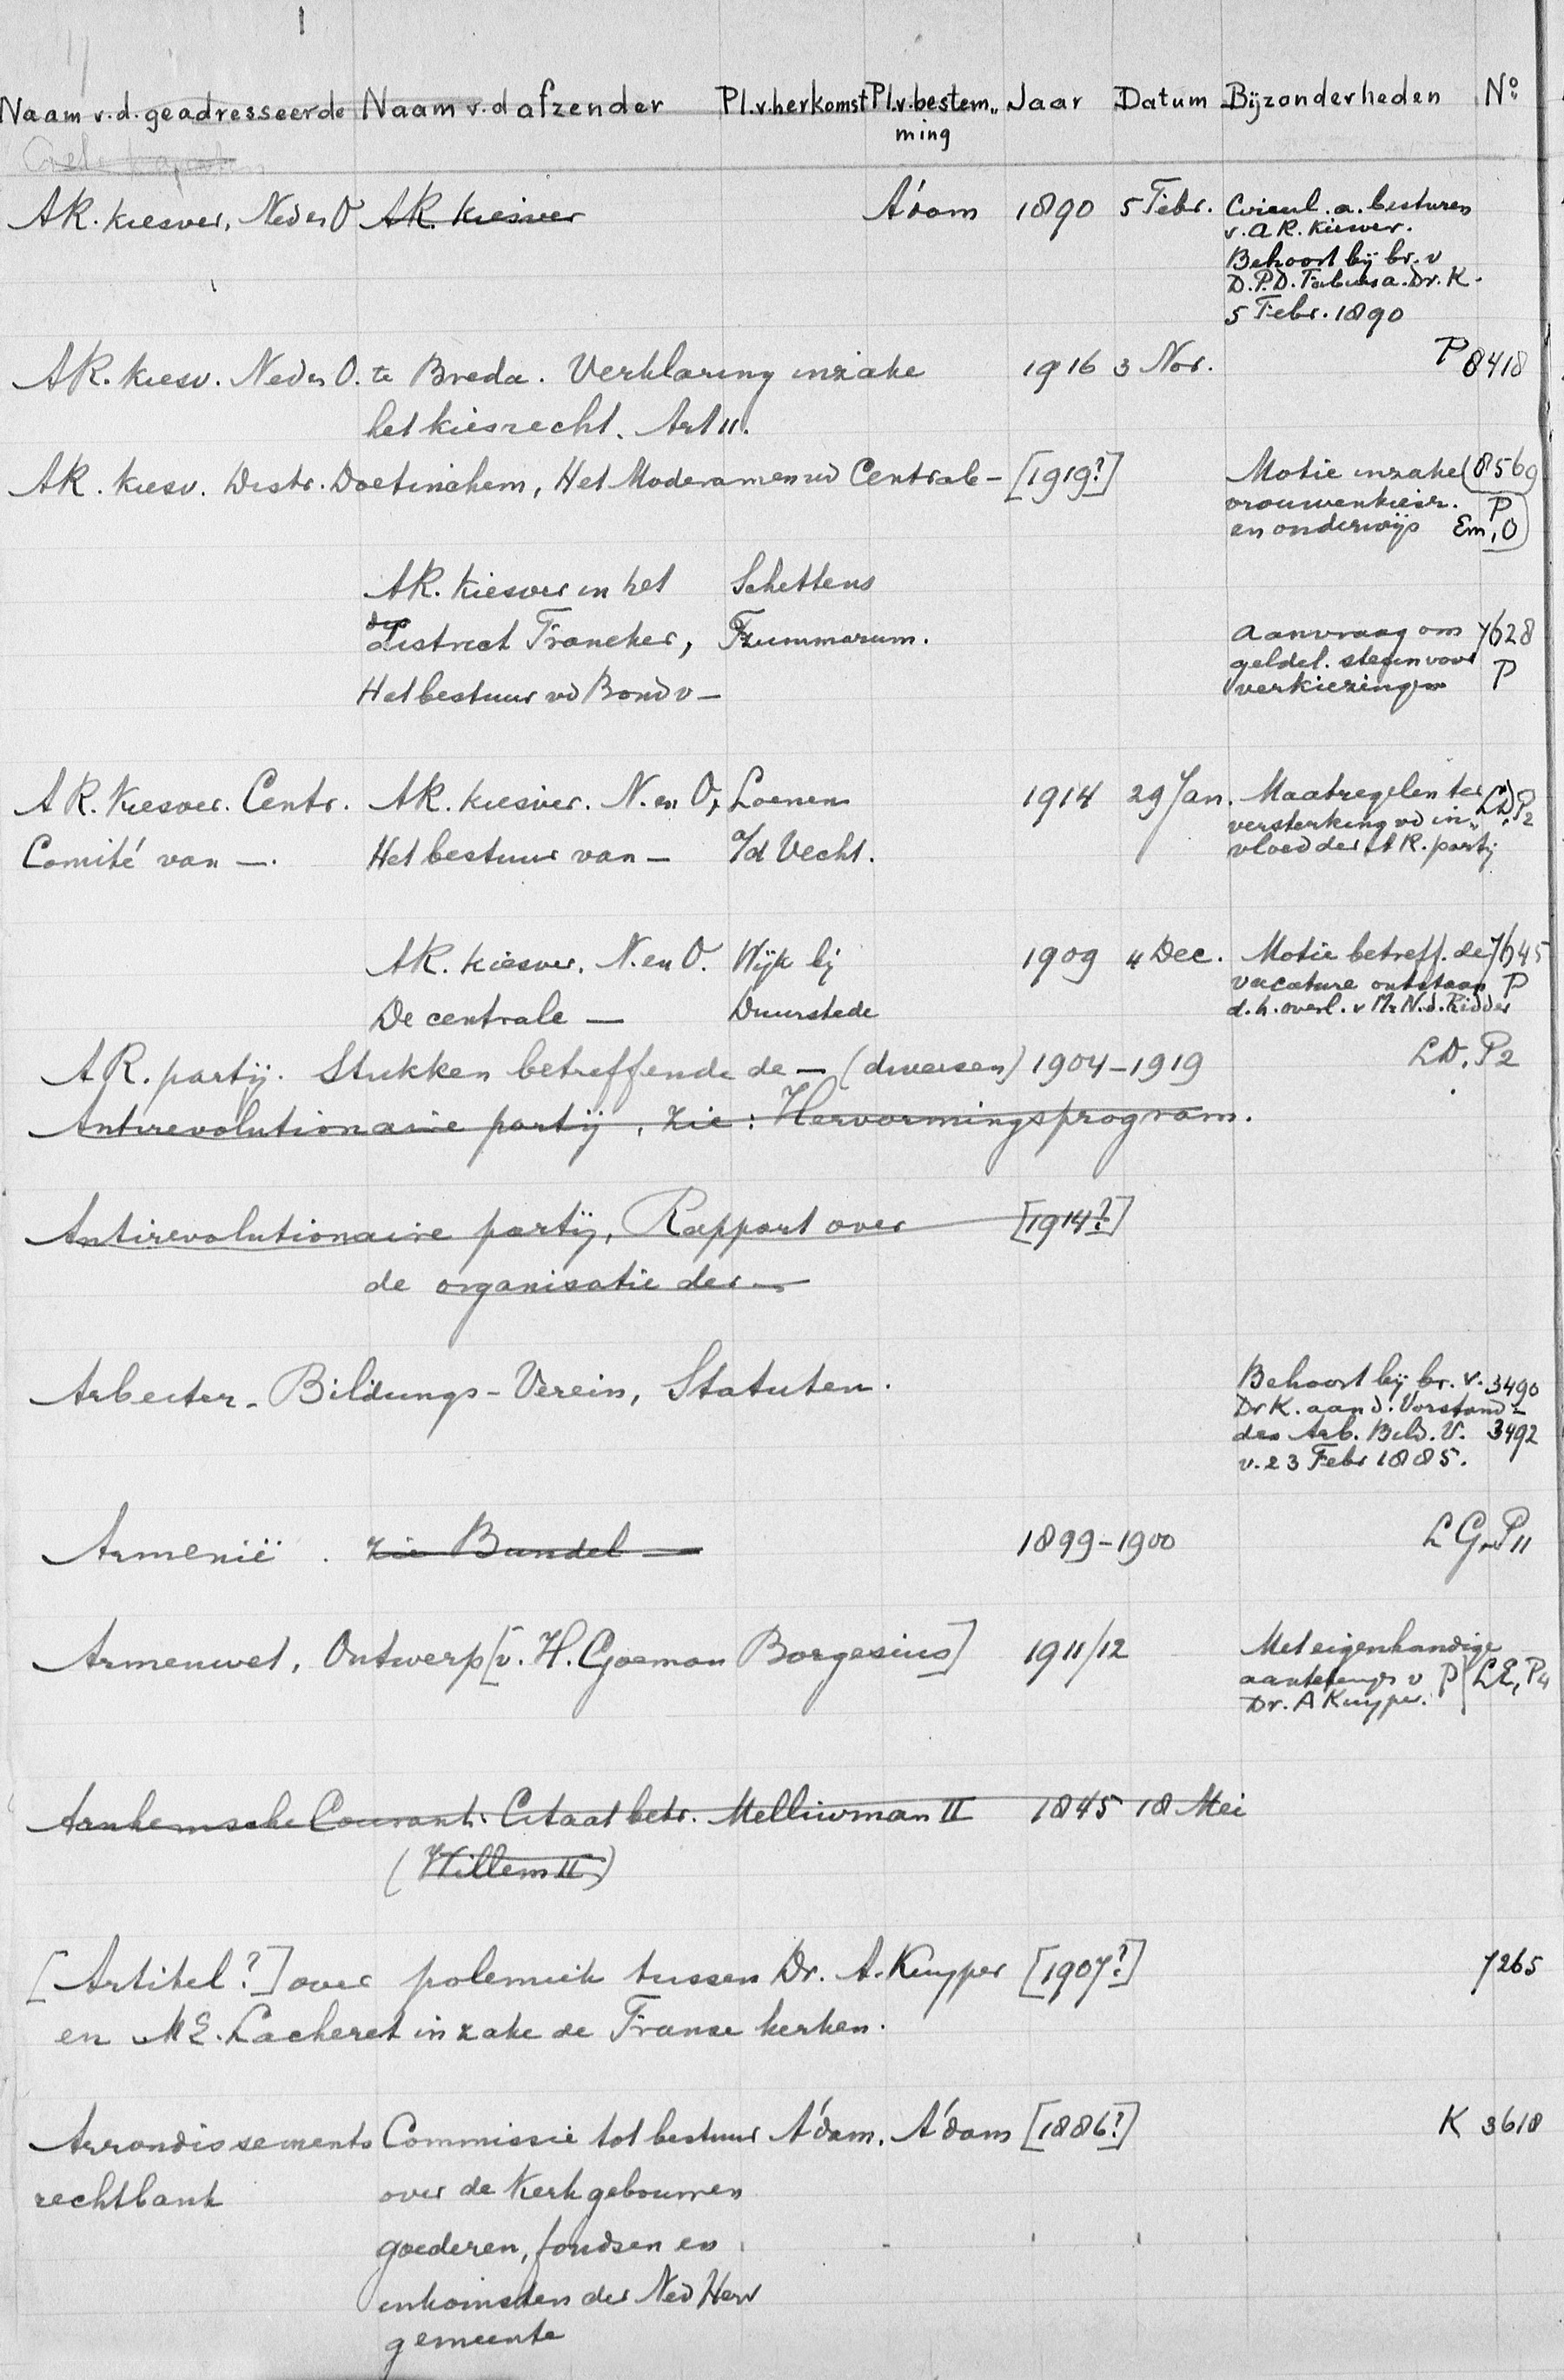 Naam v.d. geadresseerde Naam v.d afzender Pl.v.herkomst Pl.v.bestem„ Jaar Datum Bijzonderheden No
ming
AR. kiesver. Ned en O AR. kiesver A'dam 1890 5 Febr. Circul. a. besturen
v. AR. Kiesver.
Behoort bij br. v
D.P.D. Fabius a. Dr. K.
5 Febr. 1890
AR. kiesv. Ned en O. te Breda. Verklaring inzake 1916 3 Nov. P 8418
het kiesrecht. Art 11.
AR. kiesv. Distr. Doetinchem, Het Moderamen vd Centrale - [1919?] Motie inzake 8569
vrouwenkiesr. P
en onderwijs Em, O
AR. kiesver in het Schettens
District Franeker, Tzummarum. Aanvraag om 7628
geldel. steun voor P
Het bestuur vd Bond v - verkiezingen
AR. Kiesver. Centr. AR. kiesver. N. en O, Loenen 1914 29 Jan. Maatregelen ter LD, P2
versterking vd in„
Comité van -. Het bestuur van - a/d Vecht. vloed der AR. partij
AR. kiesver. N. en O. Wijk bij 1909 4 Dec. Motie betreff. de 7645
vacature ontstaan P
De centrale - Duurstede d. h. overl. v Mr N. d. Ridder
AR. partij. Stukken betreffende de - (diversen) 1904-1919 LD. P2
Antirevolutionaire partij, zie: Hervormingsprogram.
Antirevolutionaire partij, Rapport over [1914?]
de organisatie der -
Arbeiter - Bildungs - Verein, Statuten. Behoort bij br. v. 3490
Dr K. aan d. Vorstand -
des Arb. Bild. V. 3492
v. 23 Febr 1885.
Armenië. zie Bundel - 1899-1900 LG, P11
Armenwet, Ontwerp [v. H. Goeman Borgesius] 1911/12 Met eigenhandige
aanteteng v P LE, P4
Dr. A Kuyper.
Arnhemsche Courant: Citaat betr. Melliwman II 1845 18 Mei
(Willem II)
[Artikel?] over polemiek tussen Dr. A. Kuyper [1907?] 7265
en ME. Lacheret inzake de Franse kerken.
Arrondissements Commissie tot bestuur A'dam. A'dam [1886?] K 3618
rechtbank over de Kerkgebouwen
goederen, fondsen en
inkomsten der Ned Herv
gemeente